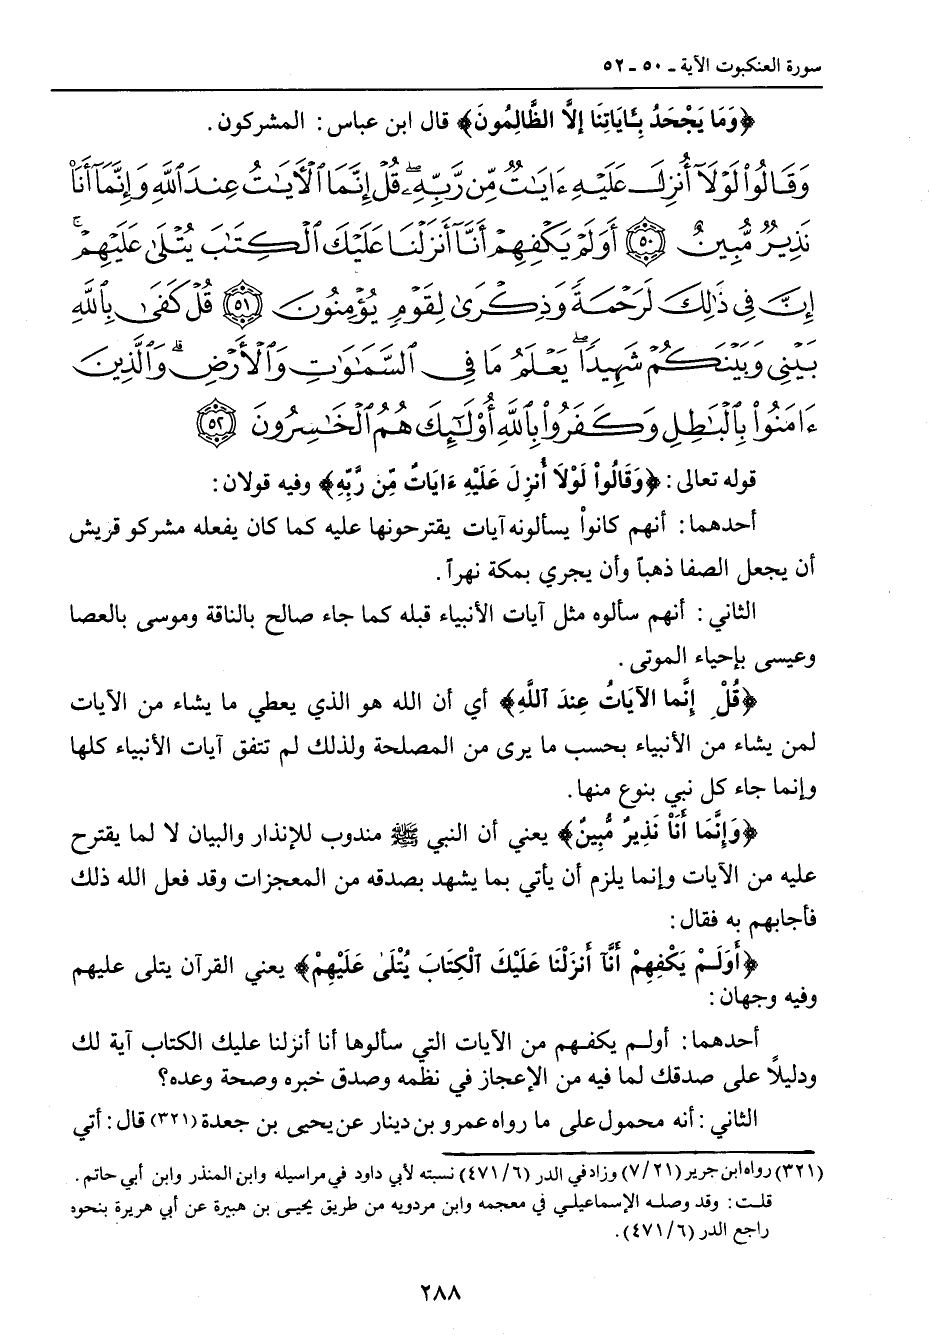 سورة العنكبوت الآية ـ ٥٠ ـ ٥٢
﴿وَمَا يَجْحَدُ بِـَٔايَاتِنَا إلاَّ الظَّالِمُونَ﴾ قال ابن عباس : المشركون .
وَقَالُوا۟ لَوْلَآ أُنزِلَ عَلَيْهِ ءَايَـٰتٌ مِّن رَّبِّهِۦ ۖ قُلْ إِنَّمَا ٱلْأَيَـٰتُ عِندَ ٱللَّهِ وَإِنَّمَآ أَنَا۠
نَذِيرٌ مُّبِينٌ ٥٠ أَوَلَمْ يَكْفِهِمْ أَنَّآ أَنزَلْنَا عَلَيْكَ ٱلْكِتَـٰبَ يُتْلَىٰ عَلَيْهِمْ ۚ
إِنَّ فِى ذَٰلِكَ لَرَحْمَةً وَذِكْرَىٰ لِقَوْمٍ يُؤْمِنُونَ ٥١ قُلْ كَفَىٰ بِٱللَّهِ
بَيْنِى وَبَيْنَكُمْ شَهِيدًا ۖ يَعْلَمُ مَا فِى ٱلسَّمَـٰوَٰتِ وَٱلْأَرْضِ ۗ وَٱلَّذِينَ
ءَامَنُوا۟ بِٱلْبَـٰطِلِ وَكَفَرُوا۟ بِٱللَّهِ أُو۟لَـٰٓئِكَ هُمُ ٱلْخَـٰسِرُونَ ٥٢
قوله تعالى : ﴿وَقَالُواْ لَوْلاَ أُنزِلَ عَلَيْهِ ءَايَاتٌ مِّن رَّبِّهِ﴾ وفيه قولان :
أحدهما : أنهم كانواْ يسألونه آيات يقترحونها عليه كما كان يفعله مشركو قريش
أن يجعل الصفا ذهباً وأن يجري بمكة نهراً .
الثاني : أنهم سألوه مثل آيات الأنبياء قبله كما جاء صالح بالناقة وموسى بالعصا
وعيسى بإحياء الموتى .
﴿قُلْ إِنَّما الآيَاتُ عِندَ اللَّهِ﴾ أي أن الله هو الذي يعطي ما يشاء من الآيات
لمن يشاء من الأنبياء بحسب ما يرى من المصلحة ولذلك لم تتفق آيات الأنبياء كلها
وإنما جاء كل نبي بنوع منها .
﴿وَإِنَّمَا أَنَاْ نَذِيرٌ مُّبِينٌ﴾ يعني أن النبي ﷺ مندوب للإنذار والبيان لا لما يقترح
عليه من الآيات وإنما يلزم أن يأتي بما يشهد بصدقه من المعجزات وقد فعل الله ذلك
فأجابهم به فقال :
﴿أَوَلَمْ يَكْفِهِمْ أَنَّآ أَنزَلْنَا عَلَيْكَ ٱلْكِتَابَ يُتْلَىٰ عَلَيْهِمْ﴾ يعني القرآن يتلى عليهم
وفيه وجهان :
أحدهما : أولم يكفهم من الآيات التي سألوها أنا أنزلنا عليك الكتاب آية لك
ودليلاً على صدقك لما فيه من الإعجاز في نظمه وصدق خبره وصحة وعده؟
الثاني : أنه محمول على ما رواه عمرو بن دينار عن يحيى بن جعدة (٣٢١) قال : أتي
(٣٢١) رواه ابن جرير (٧/٢١) وزاد في الدر (٤٧١/٦) نسبته لأبي داود في مراسيله وابن المنذر وابن أبي حاتم .
قلت : وقد وصله الإسماعيلي في معجمه وابن مردويه من طريق يحيى بن هبيرة عن أبي هريرة بنحوه
راجع الدر (٤٧١/٦) .
٢٨٨